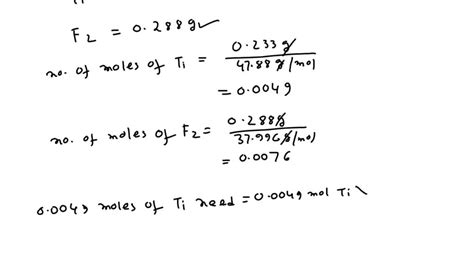 F2 = 0.288g ✓
no. of moles of Ti = 0.233 g / 47.88 g/mol
= 0.0049
no. of moles of F2 = 0.288g / 37.996 g/mol
= 0.0076
0.0049 moles of Ti need = 0.0049 mol Ti \